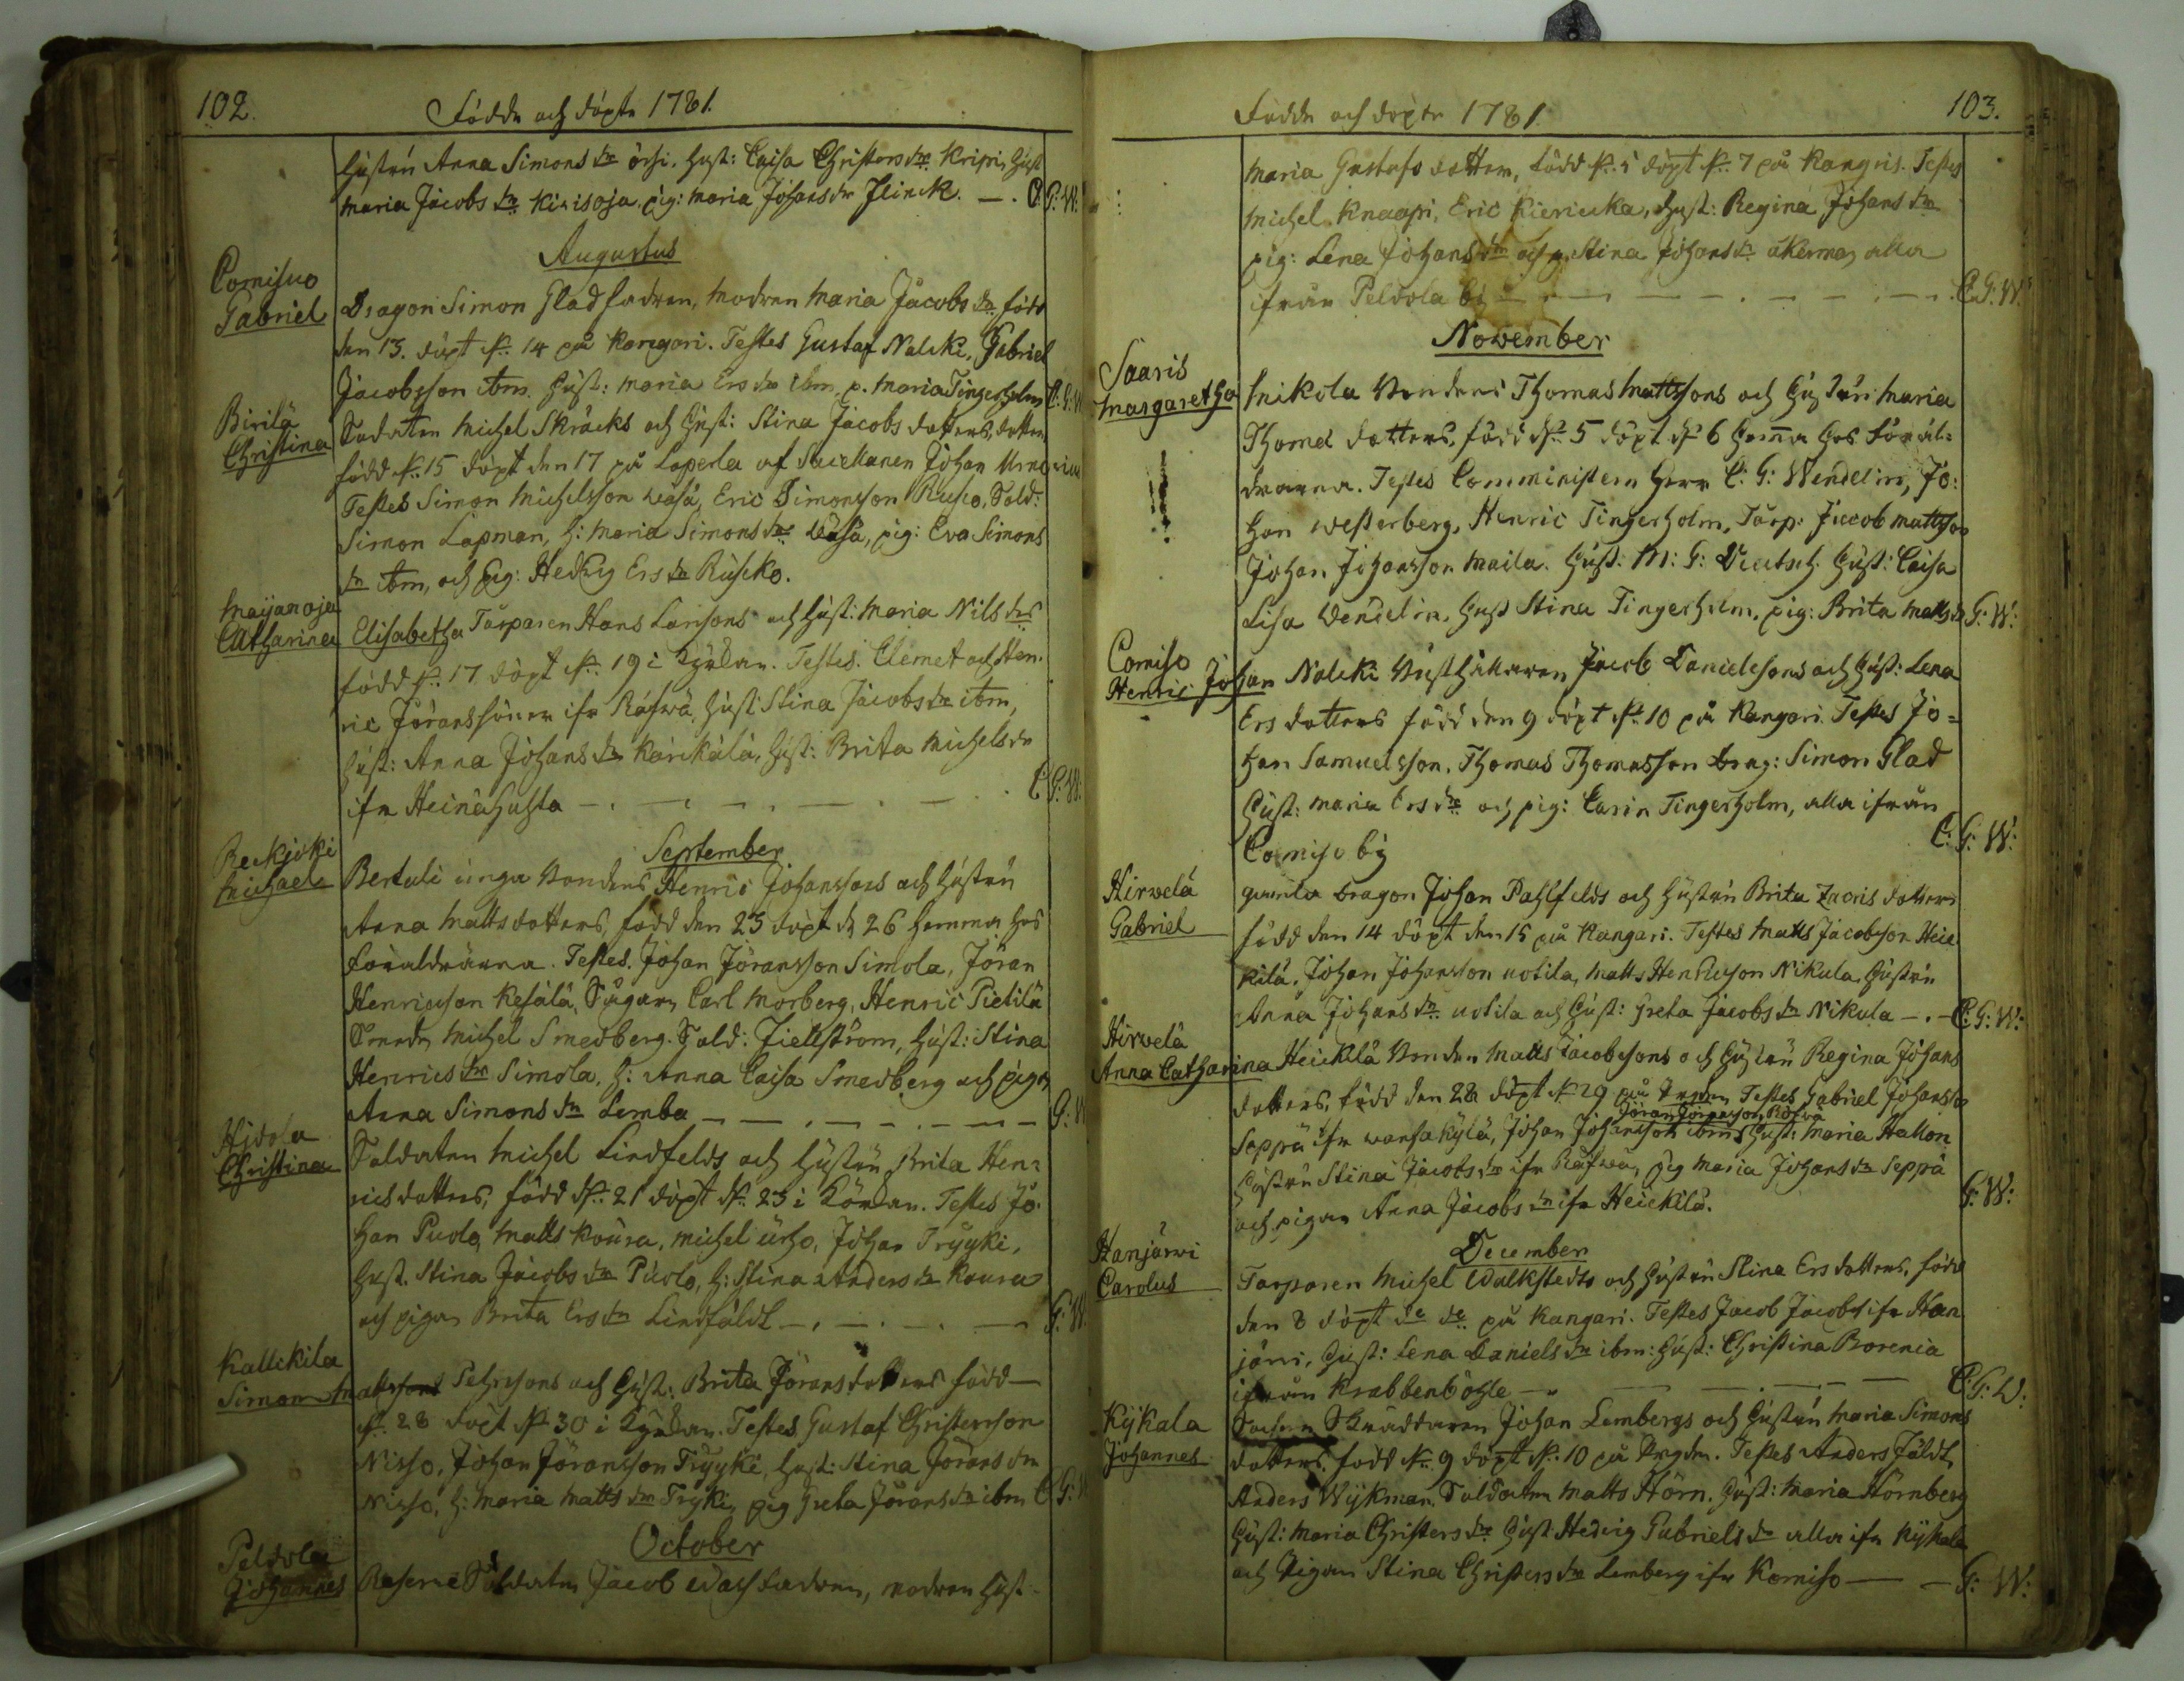 102.
Födde och döpte 1781.
hustrun Anna Simons dr örsi. hust: Caisa Christers dr Kripi, hust
Maria Jacobs dr Kivisoja, pig: Maria Johans dr Flinck. C. G: W:
Augustus
Comisuo
Gabriel
Dragon Simon Glad fadren, modren Maria Jacobs dr född
den 13. döpt d: 14 på Kangari. Testes Gustaf Nalcki, Gabriel
Jacobsson ibm. hust: Maria Ers dr ibm, p. Maria Tingerholm C. G. W
Birilä
Christina
Soldaten Michel Skräcks och hust: Stina Jacobs dotters, dotter
född d: 15 döpt den 17 på Loperla af Sacellanen Johan
Testes Simon Michelsson Wäsä, Eric Simonsson Rusco, Sold:
Simon Lapman, h: Maria Simons dr Wäsä, pig: Eva Simons
dr ibm, och pig: Hedvig Ers dr Rusko.
Maijanoja
Catharina
Elisabetha Torparen Hans Larsons och hust: Maria Nils dr
född d: 17 döpt d: 19 i Kyrkan. Testes. Clemet och Hen-
ric Jöranssöner ifr Räfwä, hust: Stina Jacobs dr ibm,
hust: Anna Johans dr Karikälä, hust: Brita Michels dr
ifr Heinähuhta C. G: W:
September
Reckijoki
Michael
Bertuli unga bondens Henric Johanssons och hustrun
Anna Matts dotters, född den 25 döpt d 26 hemma hos
Föräldrarna. Testes. Johan Jöransson Simola, Jöran
Henricsson Kesälä, Sågare Carl Morberg, Henric Pietilä
Smeden Michel Smedberg. Sold: Fiellström, hust: Stina
Henrics dr Simola, h: Anna Caisa Smedberg och pigan
Anna Simons dr Lemba G: W
Hidola
Christina
Soldaten Michel Lindfelds och hustrun Brita Hen-
rics dotters, född d: 21 döpt d: 23 i Körkan. Testes Jo-
han Puolo, Matts Koura, Michel Urho, Johan Tryyki,
hust. Stina Jacobs dr Puolo, h: Stina Anders dr Koura
och pigan Brita Ers dr Lindfäldt G: W.
Kallckila
Simon
Mattssons Pehrsons och hust: Brita Jörans dotters född
d: 28 döpt d: 30 i Kyrkan. Testes Gustaf Christersson
Nisso, Johan Jöransson Tryyki, hust: Stina Jörans dr
Nisso, h: Maria Matts dr Tryki, pig Greta Jörans dr ibm C G: W
October
Peldola
Johannes
Reserve Soldaten Jacob Wass fadren, modren hust-
Födde och döpte 1781.
103.
Maria Gustafs dotter, född d: 5 döpt d: 7 på Kangris. Testes
Michel Knaapi, Eric Kieriecka, hust: Regina Johans dr
pig: Lena Johans dr och p. Stina Johans dr åkerman alla
ifrån Peldola by C. G: W:
November
Saaris
Margaretha
Mikola Bondens Thomas Mattssons och hustrun Maria
Thomæ dotters, född d: 5 döpt d: 6 hema hos Föräl-
drarna. Testes Comministern Herr C: G: Wendelin, Jo-
han Westerberg, Henric Tingerholm, Torp: Jacob Mattsson
Johan Johansson Maila. hust: M: G: Deutsch. hust: Caisa
Lisa Wendelin, hust Stina Tingerholm, pig: Brita Matts dr G: W:
Comiso
Henric Johan
Nalcki Rusthållaren Jacob Danielssons och hust: Lena
Ers dotters född den 9 döpt d: 10 på Kangari. Testes Jo-
han Samuelsson, Thomas Thomasson Drag: Simon Glad
hust: Maria Ers dr och pig: Carin Tingerholm, alla ifrån
Comiso by C. G: W:
Hirvelä
Gabriel
gamla Dragon Johan Pahlfelds och hustrun Brita Zacris dotters
född den 14 döpt den 15 på Kangari. Testes Matts Jacobsson Heic-
kilä, Johan Johansson Uotila, Matts Henricsson Nikula, hustrun
Anna Johans dr Uotila och hust: Greta Jacobs dr Nikula C: G: W:
Hirvelä
Anna Catharina
Heickilä Bonden Matts Jacobssons och hustrun Regina Johans
dotters, född den 28 döpt d 29 på Testes Gabriel Johansson
Jöran Jöransson, Räfwä
Seppä ifr Wansakylä, Johan Johansson ibm, hust: Maria Hallon
hustrun Stina Jacobs dr ifr Räfwä, pig Maria Johans dr Seppä
och pigan Anna Jacobs dr ifr Heickilä. G: W:
December
Hanjärwi
Carolus
Torparen Michel Walkstedts och hustrun Stina Ers dotters, född
den 8 döpt de do på Kangari. Testes Jacob Jacobss ifr Han-
järvi, hust: Lena Daniels dr ibm: hust: Christina Borenia
ifrån Krabbenböhle C: G: W:
Kijkala
Johannes
Sochen Skräddaren Johan Lembergs och hustrun Maria Simons
dotters, född d: 9 döpt d: 10 på. Testes Anders Fäldt,
Anders Wijkman. Soldaten Matts Hörn. hust: Maria Hornberg
hust: Maria Christers dr hust: Hedvig Gabriels dr alla ifr Kijkala
och Pigan Stina Christers dr Lemberg ifr Komiso G: W: